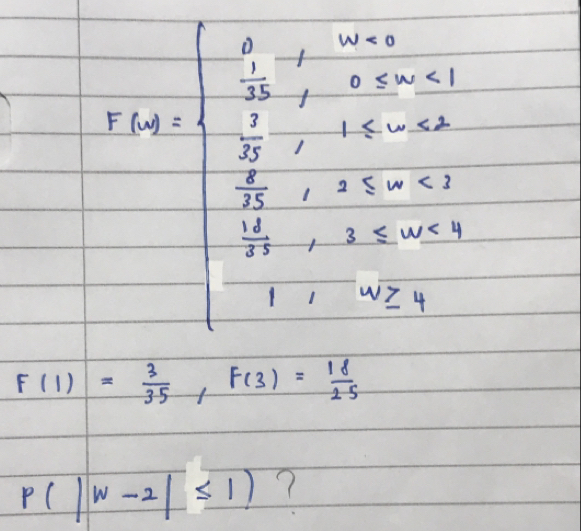 F(w) = { 0 , w < 0
1/35 , 0 ≤ w < 1
3/35 , 1 ≤ w < 2
8/35 , 2 ≤ w < 3
18/35 , 3 ≤ w < 4
1 , w ≥ 4
F(1) = 3/35 , F(3) = 18/25
P( |W - 2| ≤ 1) ?